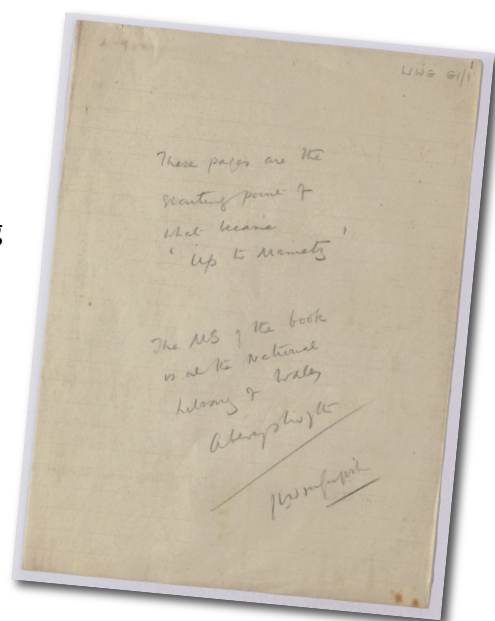 WWG G1/1
These pages are the
starting point of
what became
' Up to Mametz '
The MS of the book
is at the National
Library of Wales
Aberystwyth
g